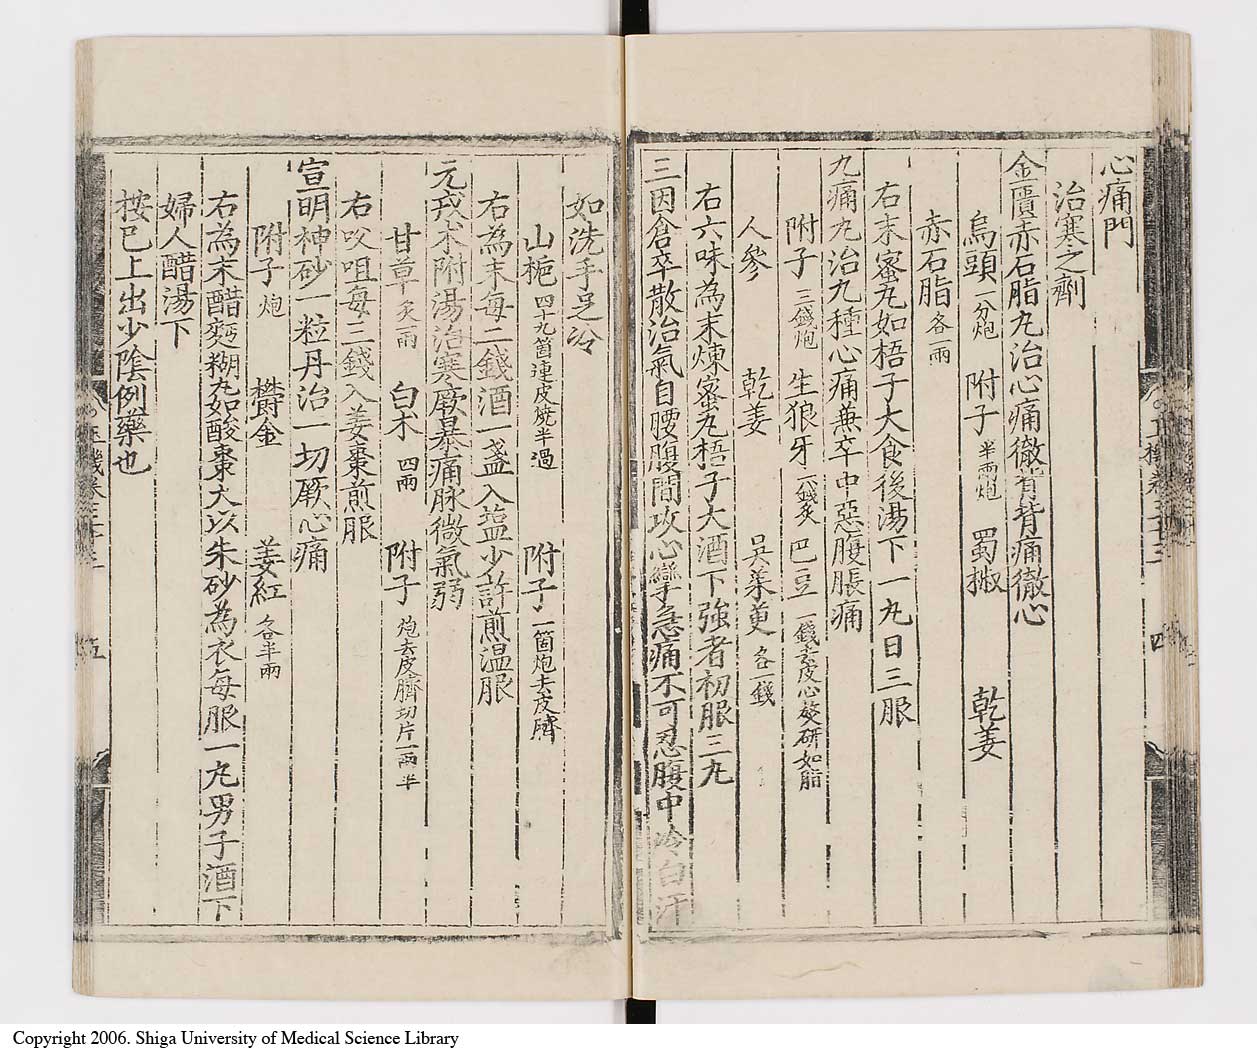 心痛門
治寒之劑
金匱赤石脂丸治心痛徹背背痛徹心
烏頭一分炮 附子半兩炮 蜀椒 乾姜
赤石脂各一兩
右末蜜丸如梧子大食後湯下一丸日三服
九痛丸治九種心痛兼卒中惡腹脹痛
附子三錢炮 生狼牙六錢炙 巴豆一錢去皮心熬研如脂
人參 乾姜 吳茱萸各一錢
右六味為末煉蜜丸梧子大酒下強者初服三丸
三因倉卒散治氣自腰腹間攻心攣急痛不可忍腹中冷白汗
如洗手足冷
山梔四十九箇連皮燒半過 附子一箇炮去皮臍
右為末每二錢酒一盞入塩少許煎溫服
元戎朮附湯治寒厥暴痛脉微氣弱
甘草炙一兩 白朮四兩 附子炮去皮臍切片一兩半
右㕮咀每三錢入姜棗煎服
宣明神砂一粒丹治一切厥心痛
附子炮 欝金 姜紅各半兩
右為末醋麪糊丸如酸棗大以朱砂為衣每服一丸男子酒下
婦人醋湯下
按已上出少陰例藥也
玉機卷
五
Copyright 2006. Shiga University of Medical Science Library